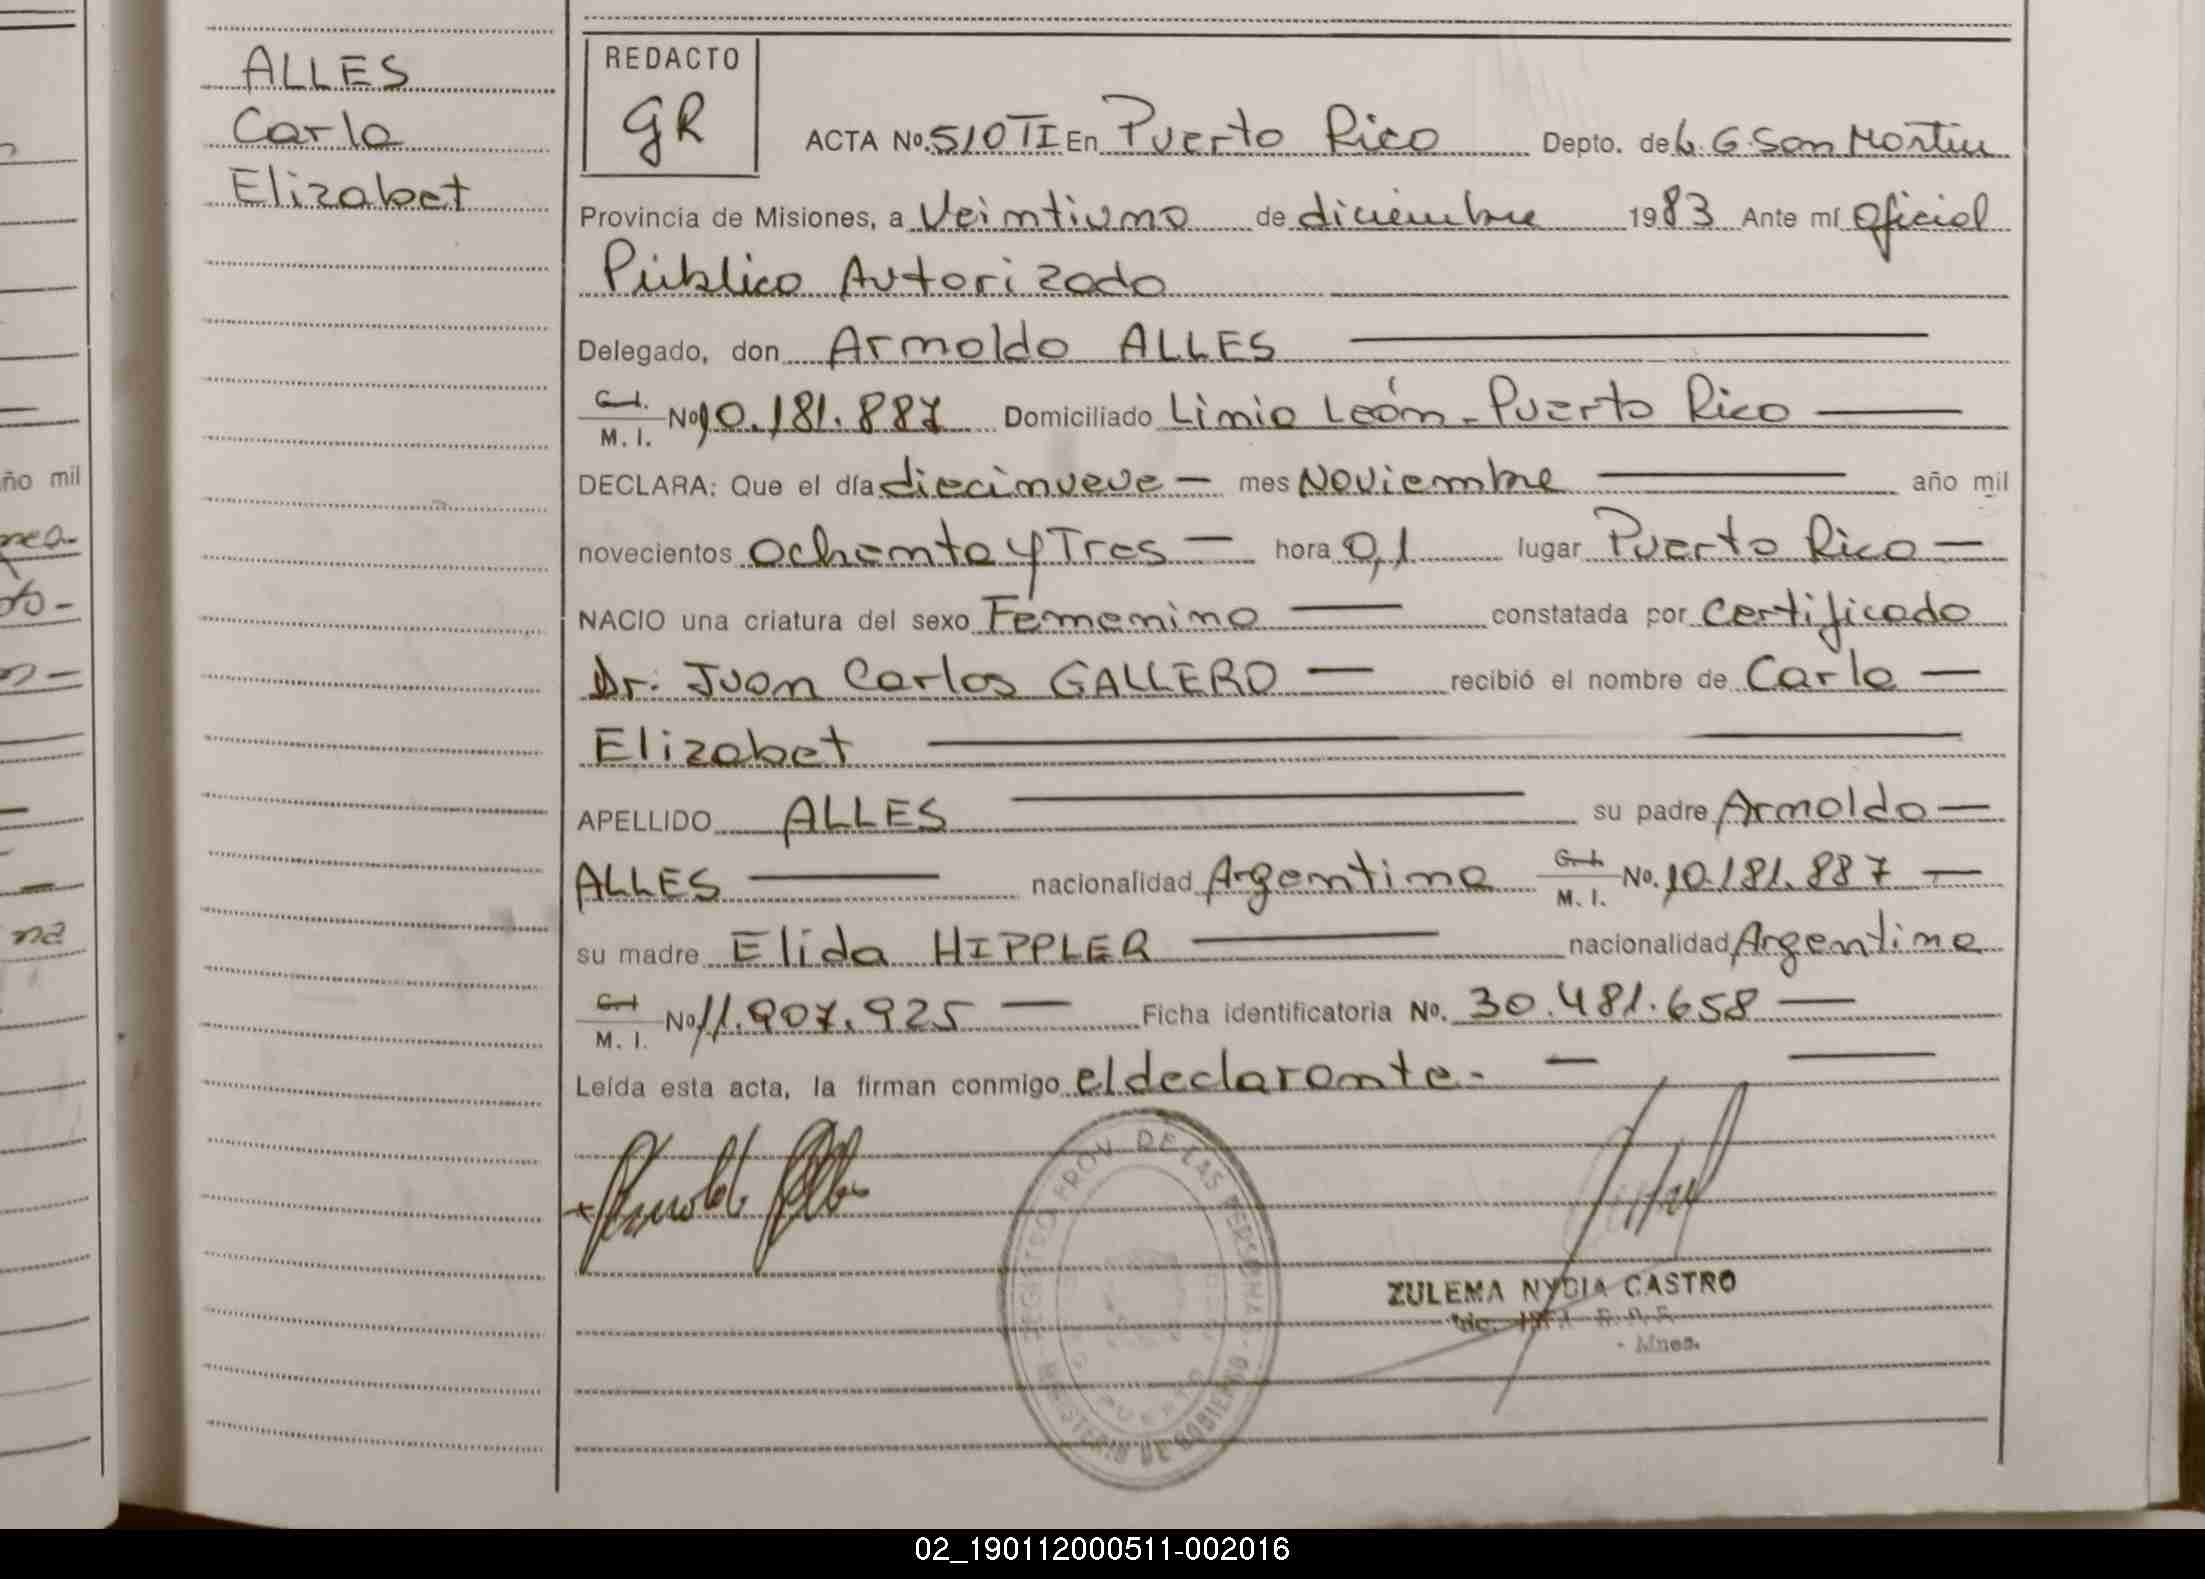 ALLES
Carla
Elizabet
REDACTO
GR
ACTA No. 510 TI En Puerto Rico Depto. de L. G. San Martin
Provincia de Misiones, a Veintiuno de diciembre 1983 Ante mí Oficial
Público Autorizado
Delegado, don Arnoldo ALLES
M. I. No 10.181.887 Domiciliado Linia León - Puerto Rico
DECLARA: Que el día diecinueve - mes Noviembre año mil
novecientos Ochenta y Tres - hora 0,1 lugar Puerto Rico -
NACIO una criatura del sexo Femenino constatada por Certificado
Dr. Juan Carlos GALLERO - recibió el nombre de Carla -
Elizabet
APELLIDO ALLES su padre Arnoldo -
ALLES nacionalidad Argentina M. I. No. 10.181.887 -
su madre Elida HIPPLER nacionalidad Argentina
M. I. No 11.907.925 - Ficha identificatoria No. 30.481.658 -
Leída esta acta, la firman conmigo el declarante. -
Arnoldo Alles
REGISTRO PROV. DE LAS PERSONAS
MINISTERIO DE GOBIERNO
PUERTO
ZULEMA NYDIA CASTRO
Mnes.
año mil
02_190112000511-002016